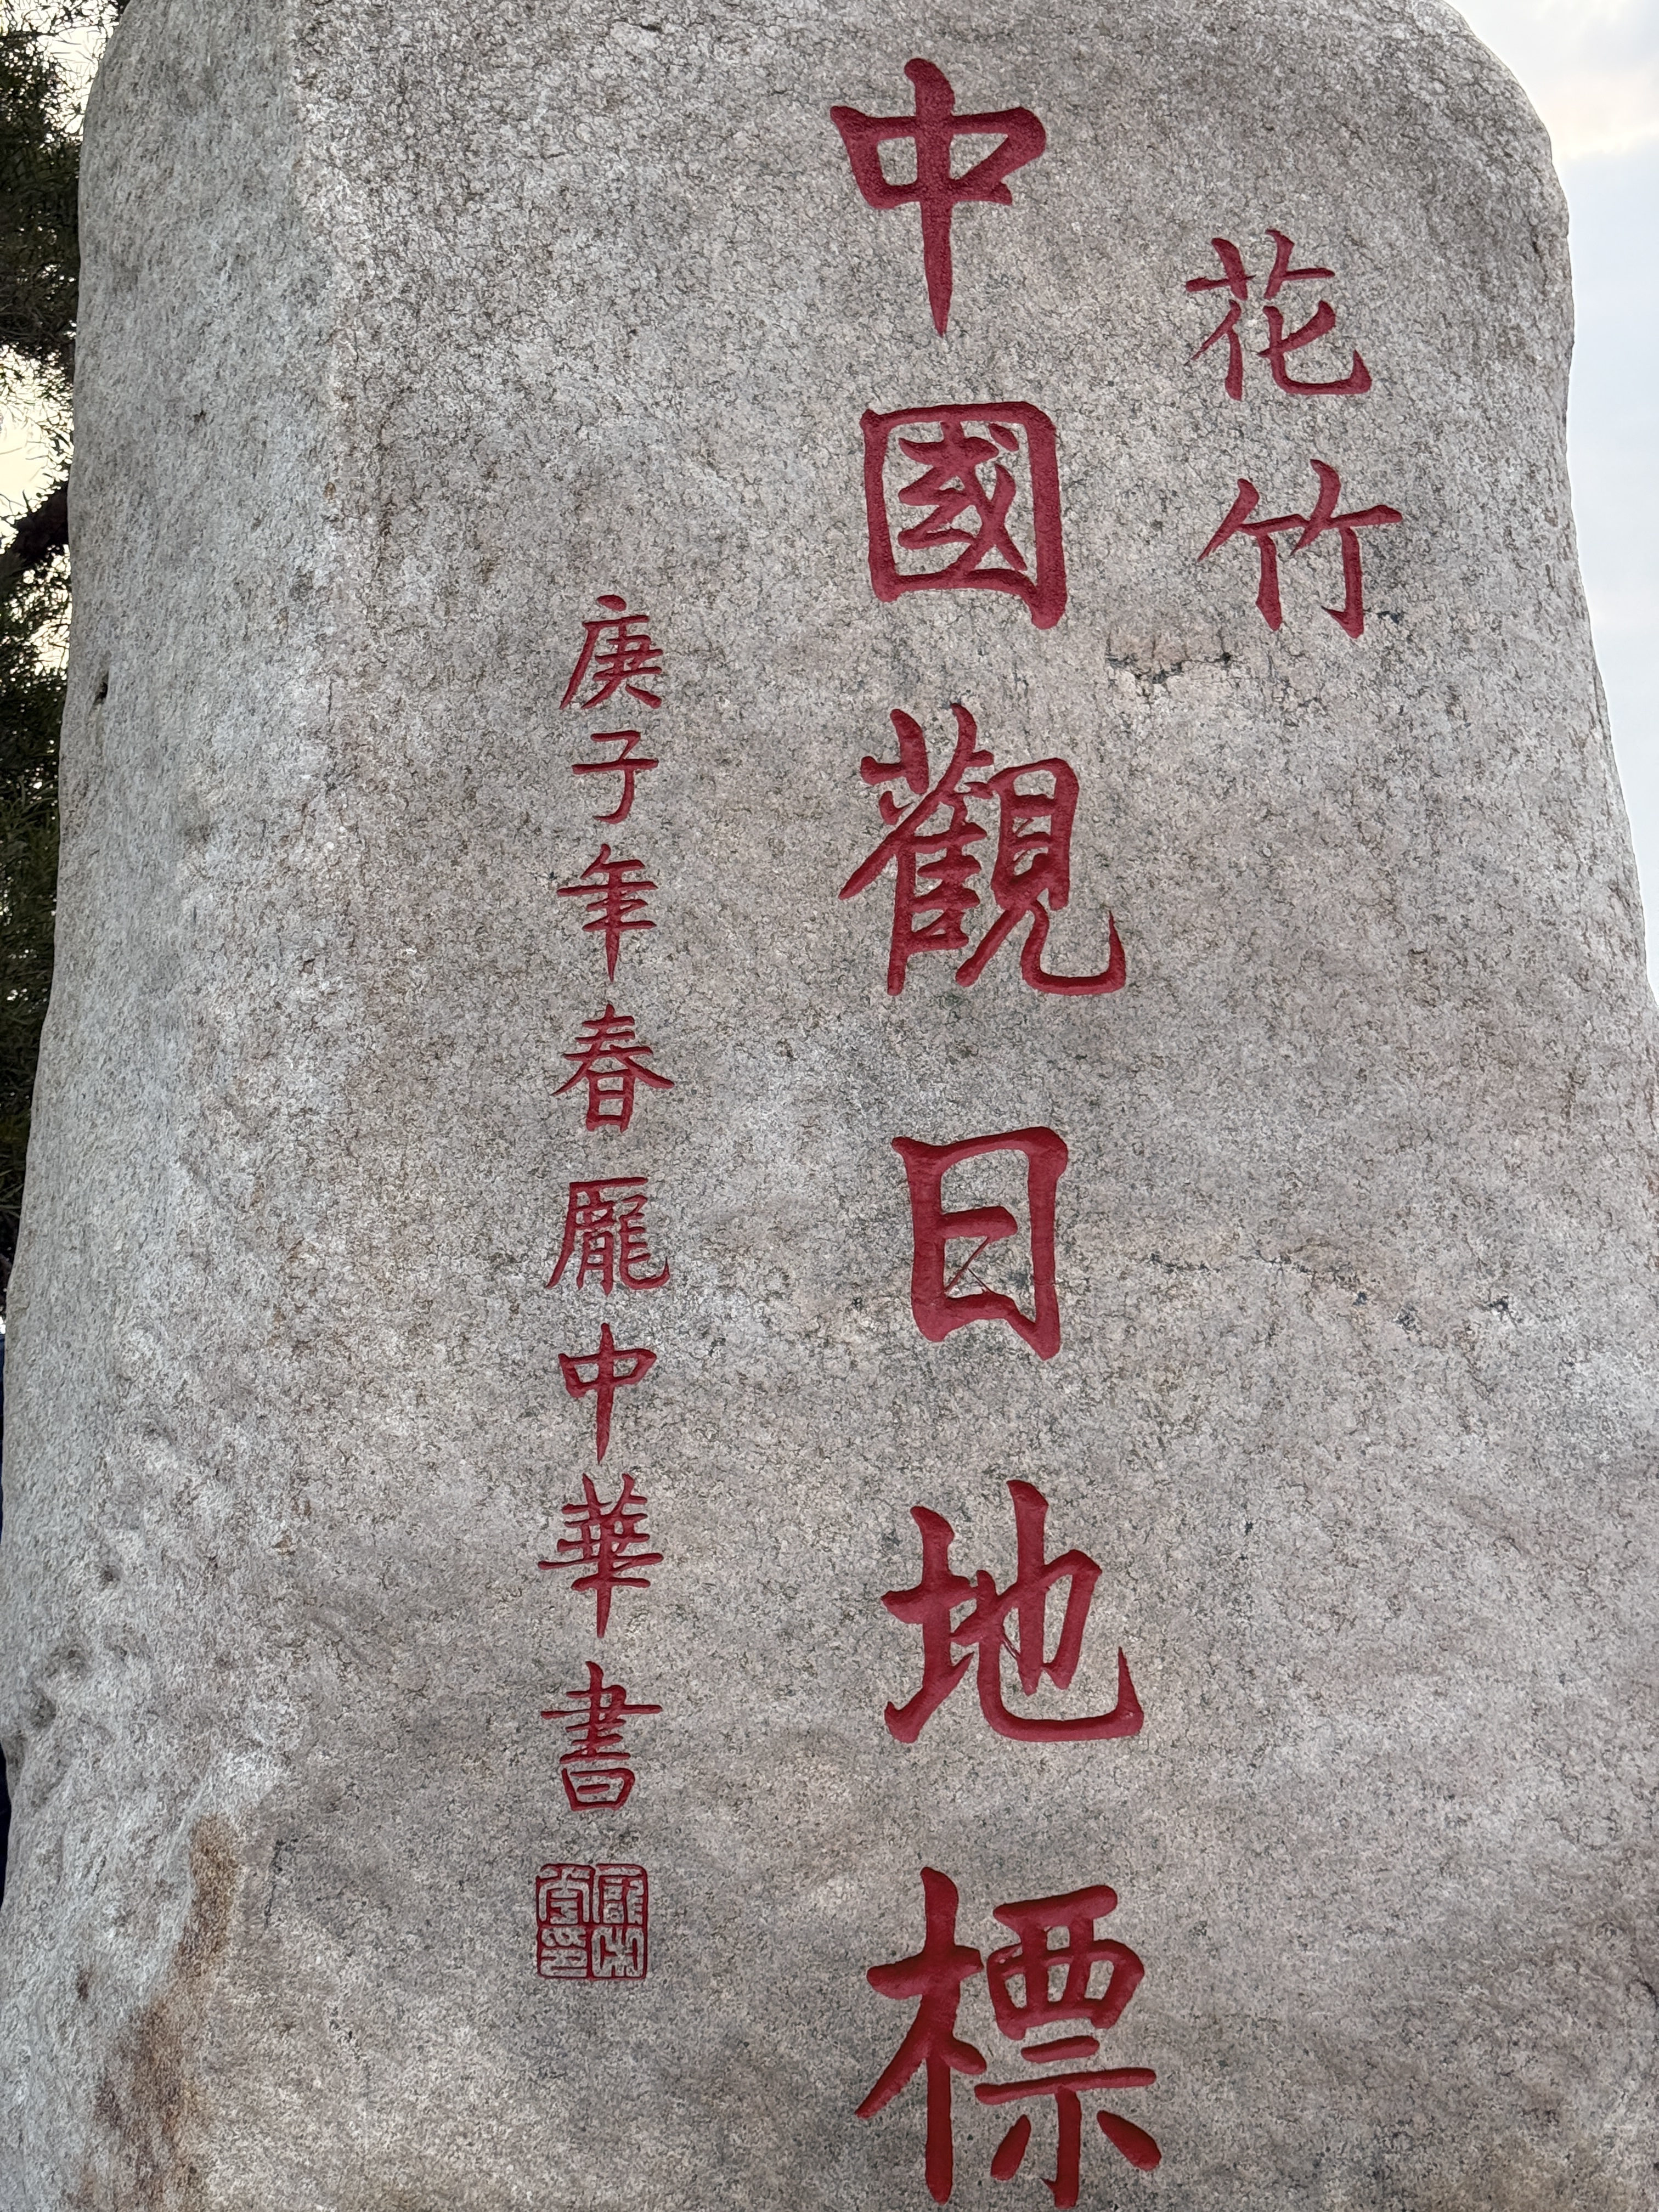 花竹
中國觀日地標
庚子年春龐中華書